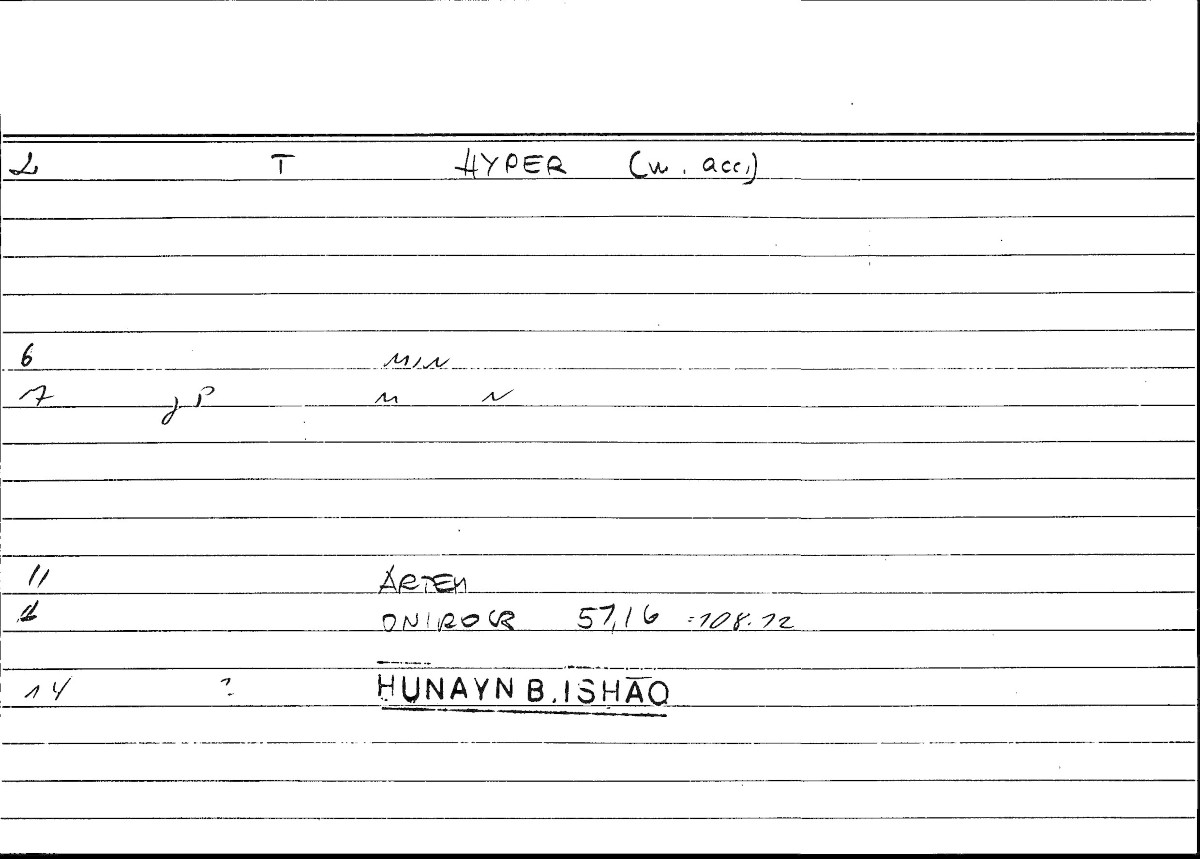 2 T HYPER (w. acc.)
6 MIN
7 γ P M N
11 ARTEM
12 ONIROCR 57,16 =108.12
14 ? HUNAYN B. ISHĀQ